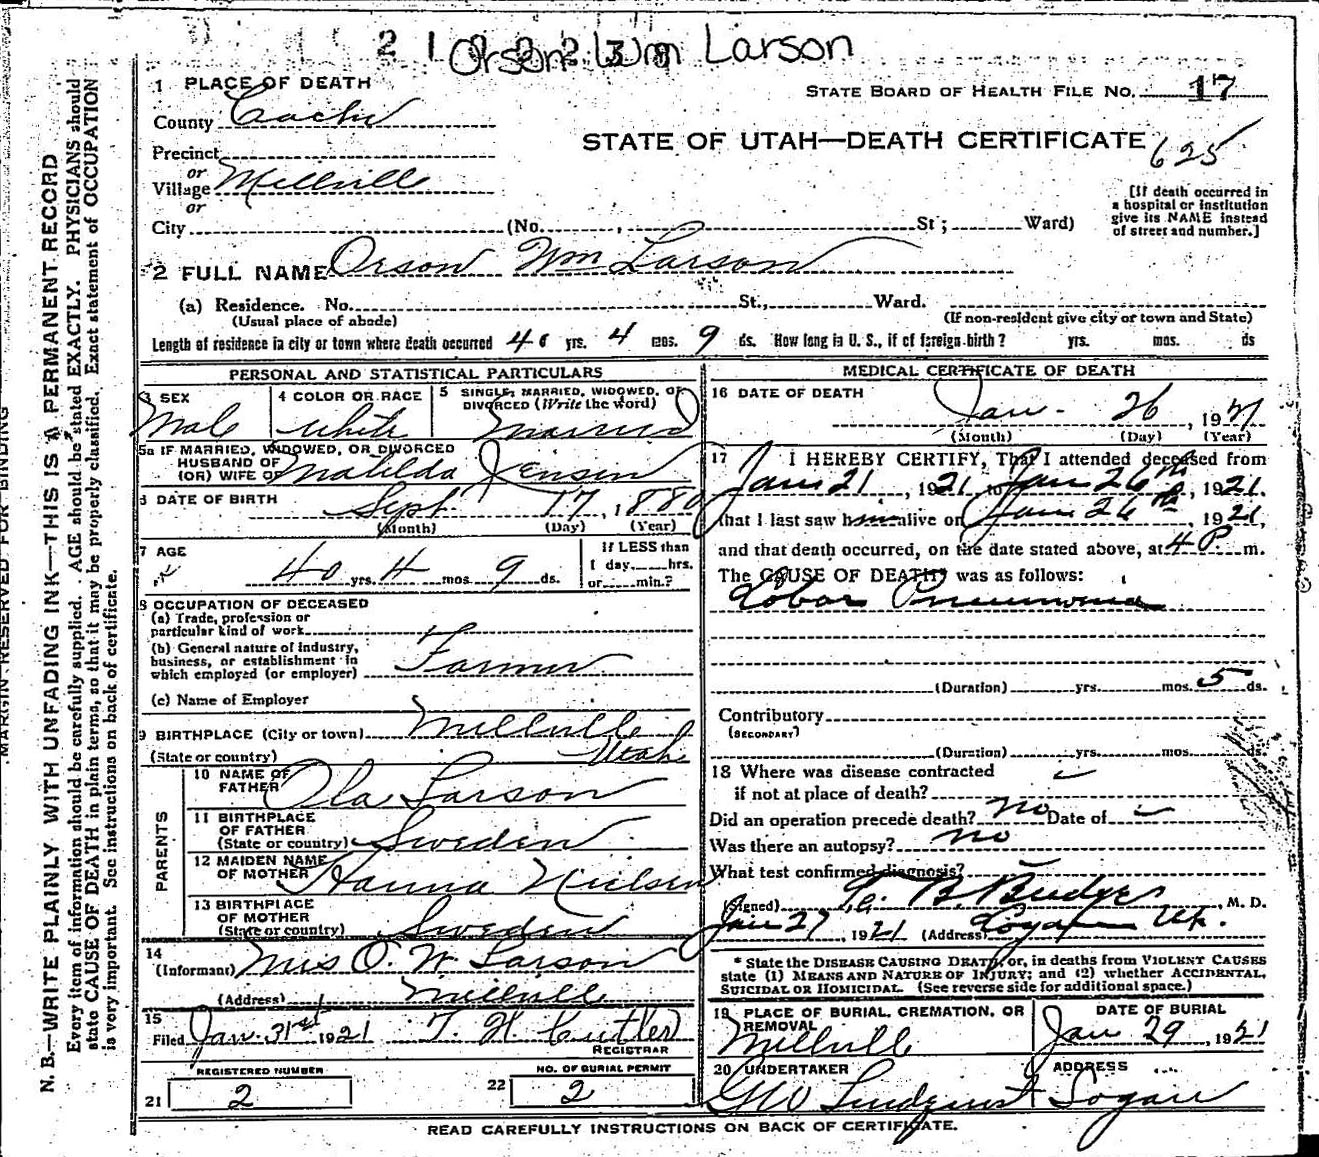 Orson Wm Larson
1 PLACE OF DEATH
STATE BOARD OF HEALTH FILE No. 17
County Cache
STATE OF UTAH—DEATH CERTIFICATE 625
Precinct
or
Village Millville
or
City (No. , St ; Ward)
[If death occurred in a hospital or institution give its NAME instead of street and number.]
2 FULL NAME Orson Wm Larson
(a) Residence. No. St., Ward.
(Usual place of abode) (If non-resident give city or town and State)
Length of residence in city or town where death occurred 40 yrs. 4 mos. 9 ds. How long in U. S., if of foreign birth? yrs. mos. ds
PERSONAL AND STATISTICAL PARTICULARS
3 SEX Male
4 COLOR OR RACE White
5 SINGLE, MARRIED, WIDOWED, OR DIVORCED (Write the word) Married
5a IF MARRIED, WIDOWED, OR DIVORCED
HUSBAND OF
(OR) WIFE OF Matilda Jensen
6 DATE OF BIRTH Sept. 17, 1880
(Month) (Day) (Year)
7 AGE 40 yrs. 4 mos 9 ds.
If LESS than
1 day, hrs.
or min.?
8 OCCUPATION OF DECEASED
(a) Trade, profession or
particular kind of work
(b) General nature of industry,
business, or establishment in
which employed (or employer) Farmer
(c) Name of Employer
9 BIRTHPLACE (City or town) Millville
(State or country) Utah
PARENTS
10 NAME OF FATHER Ola Larson
11 BIRTHPLACE OF FATHER
(State or country) Sweden
12 MAIDEN NAME OF MOTHER Hanna Nielsen
13 BIRTHPLACE OF MOTHER
(State or country) Sweden
14
(Informant) Mrs O. W. Larson
(Address) Millville
15
Filed Jan. 31st 1921 T. H. Cutler
REGISTRAR
REGISTERED NUMBER
21 2
NO. OF BURIAL PERMIT
22 2
MEDICAL CERTIFICATE OF DEATH
16 DATE OF DEATH
Jan. 26, 1921
(Month) (Day) (Year)
17 I HEREBY CERTIFY, That I attended deceased from
Jan 21, 1921, to Jan 26th, 1921.
that I last saw him alive on Jan 26th, 1921,
and that death occurred, on the date stated above, at 4 P m.
The CAUSE OF DEATH* was as follows:
Lobar Pneumonia
(Duration) yrs. mos. 5 ds.
Contributory
(SECONDARY)
(Duration) yrs. mos. ds.
18 Where was disease contracted
if not at place of death?
Did an operation precede death? no Date of
Was there an autopsy? no
What test confirmed diagnosis?
(Signed) B. Budge M. D.
Jan 27, 1921 (Address) Logan Ut.
* State the DISEASE CAUSING DEATH, or, in deaths from VIOLENT CAUSES
state (1) MEANS AND NATURE OF INJURY; and (2) whether ACCIDENTAL,
SUICIDAL OR HOMICIDAL. (See reverse side for additional space.)
19 PLACE OF BURIAL, CREMATION, OR REMOVAL
Millville
DATE OF BURIAL
Jan 29, 1921
20 UNDERTAKER
GW Lindquist
ADDRESS
Logan
READ CAREFULLY INSTRUCTIONS ON BACK OF CERTIFICATE.
MARGIN RESERVED FOR BINDING
N. B.—WRITE PLAINLY WITH UNFADING INK—THIS IS A PERMANENT RECORD
Every item of information should be carefully supplied. AGE should be stated EXACTLY. PHYSICIANS should
state CAUSE OF DEATH in plain terms, so that it may be properly classified. Exact statement of OCCUPATION
is very important. See instructions on back of certificate.